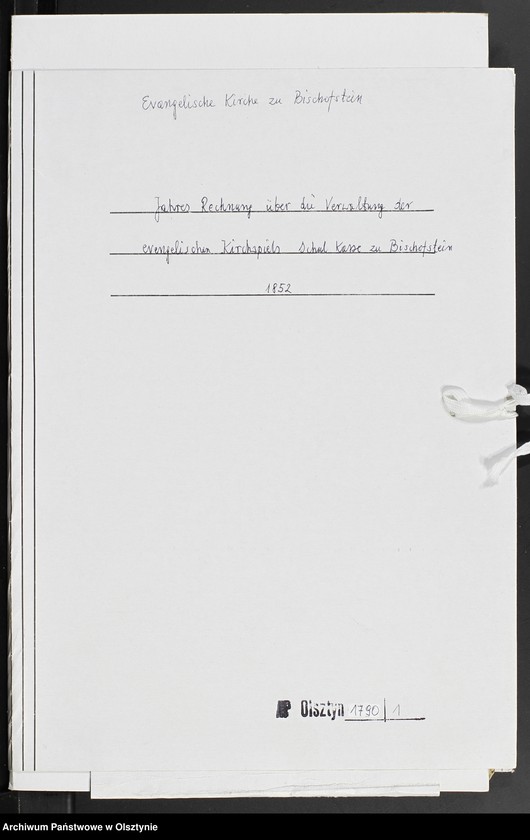 Evangelische Kirche zu Bischofstein
Jahres Rechnung über die Verwaltung der
evangelischen Kirchspiels Schul Kasse zu Bischofstein
1852
AP Olsztyn 1790 | 1
Archiwum Państwowe w Olsztynie